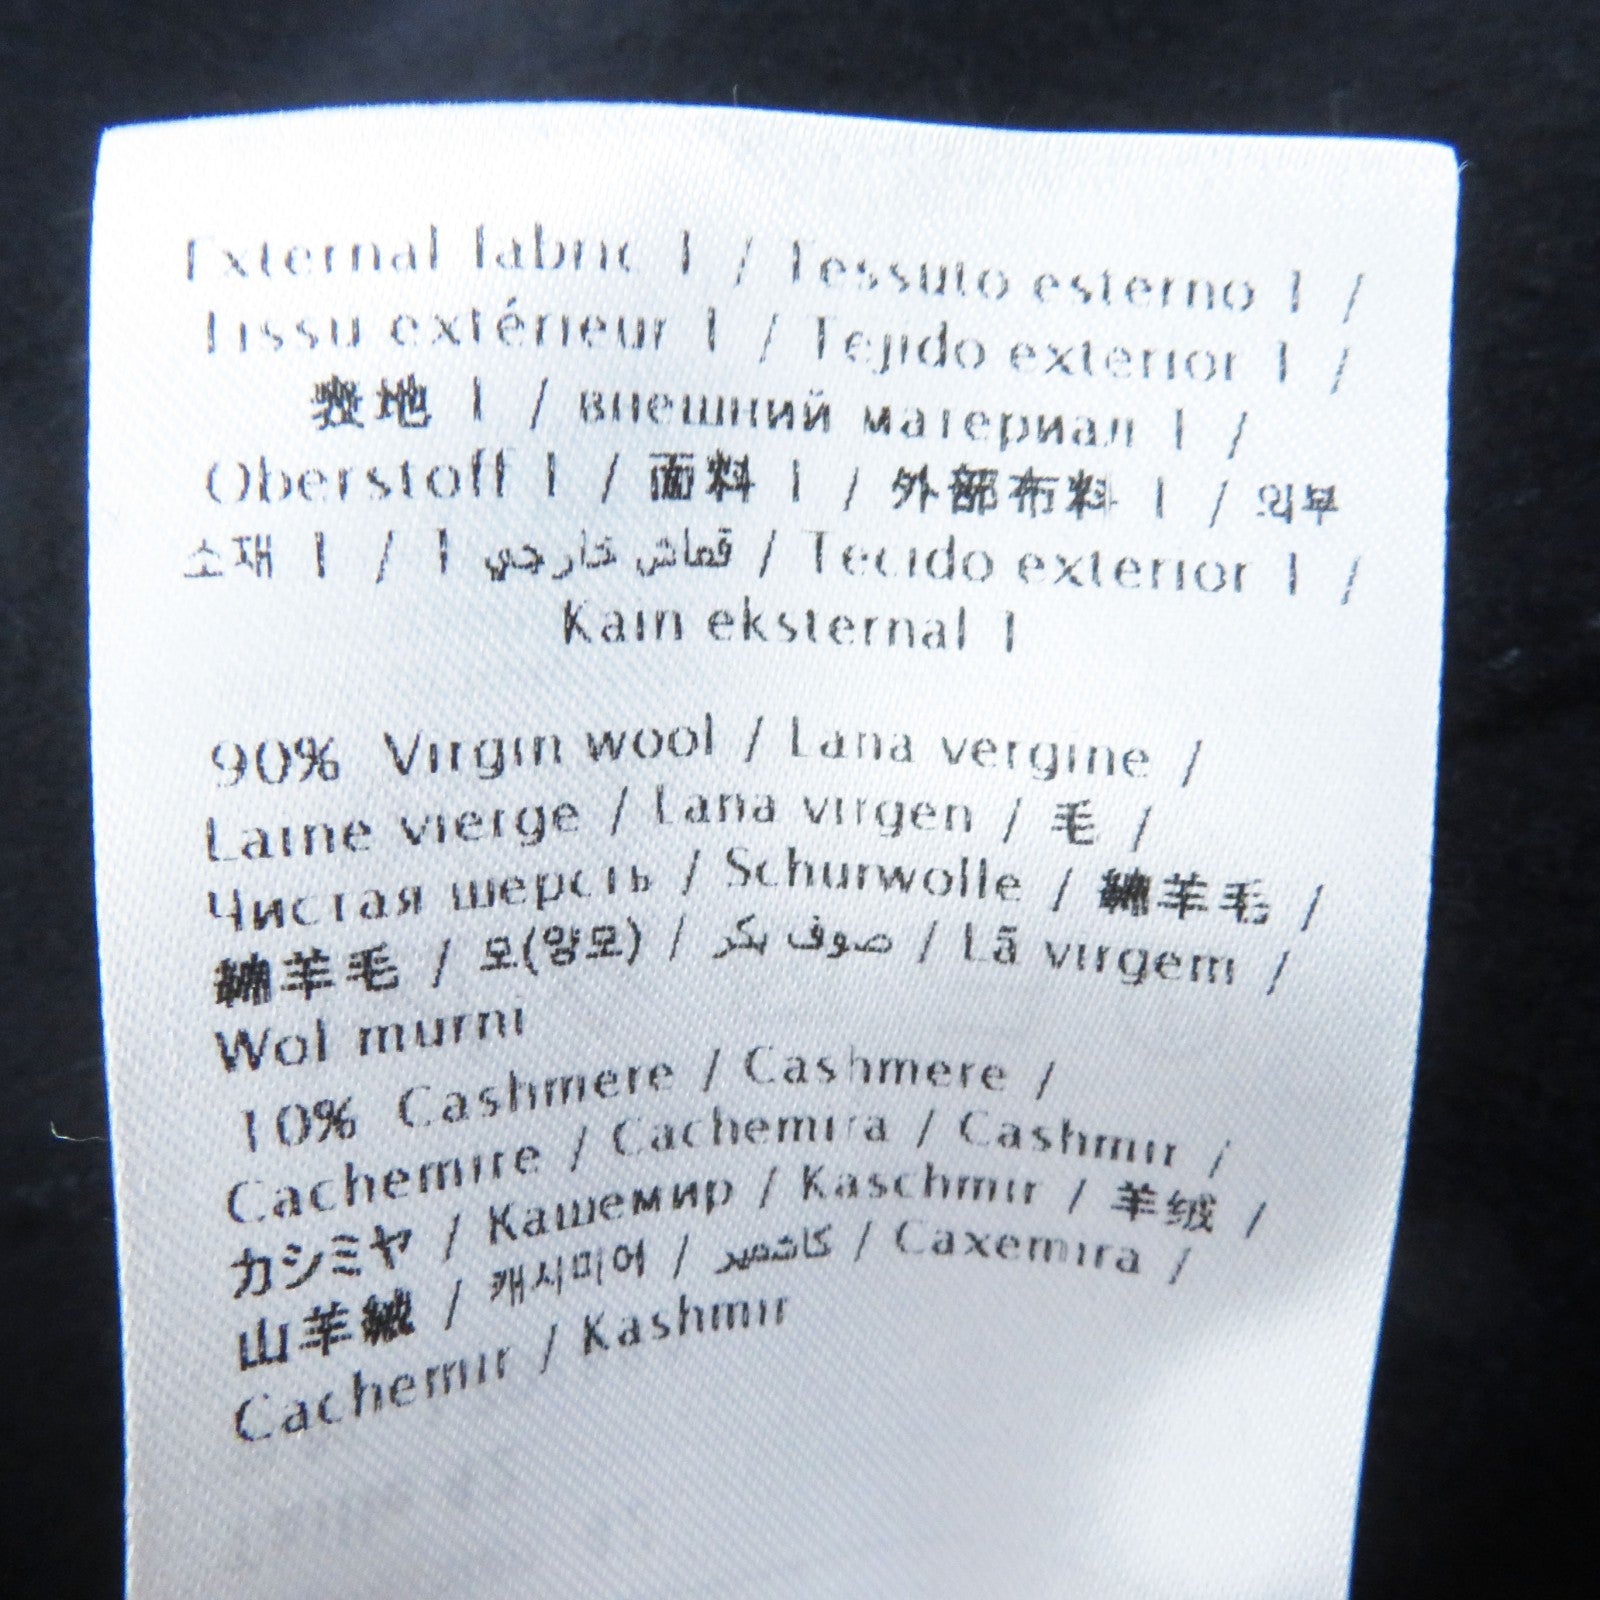 External fabric 1 / Tessuto esterno 1 /
Tissu extérieur 1 / Tejido exterior 1 /
表地 1 / внешний материал 1 /
Oberstoff 1 / 面料 1 / 外部布料 1 / 외부
소재 1 / 1 قماش خارجي / Tecido exterior 1 /
Kain eksternal 1
90% Virgin wool / Lana vergine /
Laine vierge / Lana virgen / 毛 /
Чистая шерсть / Schurwolle / 绵羊毛 /
綿羊毛 / 모(양모) / صوف بكر / Lã virgem /
Wol murni
10% Cashmere / Cashmere /
Cachemire / Cachemira / Cashmir /
カシミヤ / Кашемир / Kaschmir / 羊绒 /
山羊絨 / 캐시미어 / كاشمير / Caxemira /
Cachemir / Kashmir